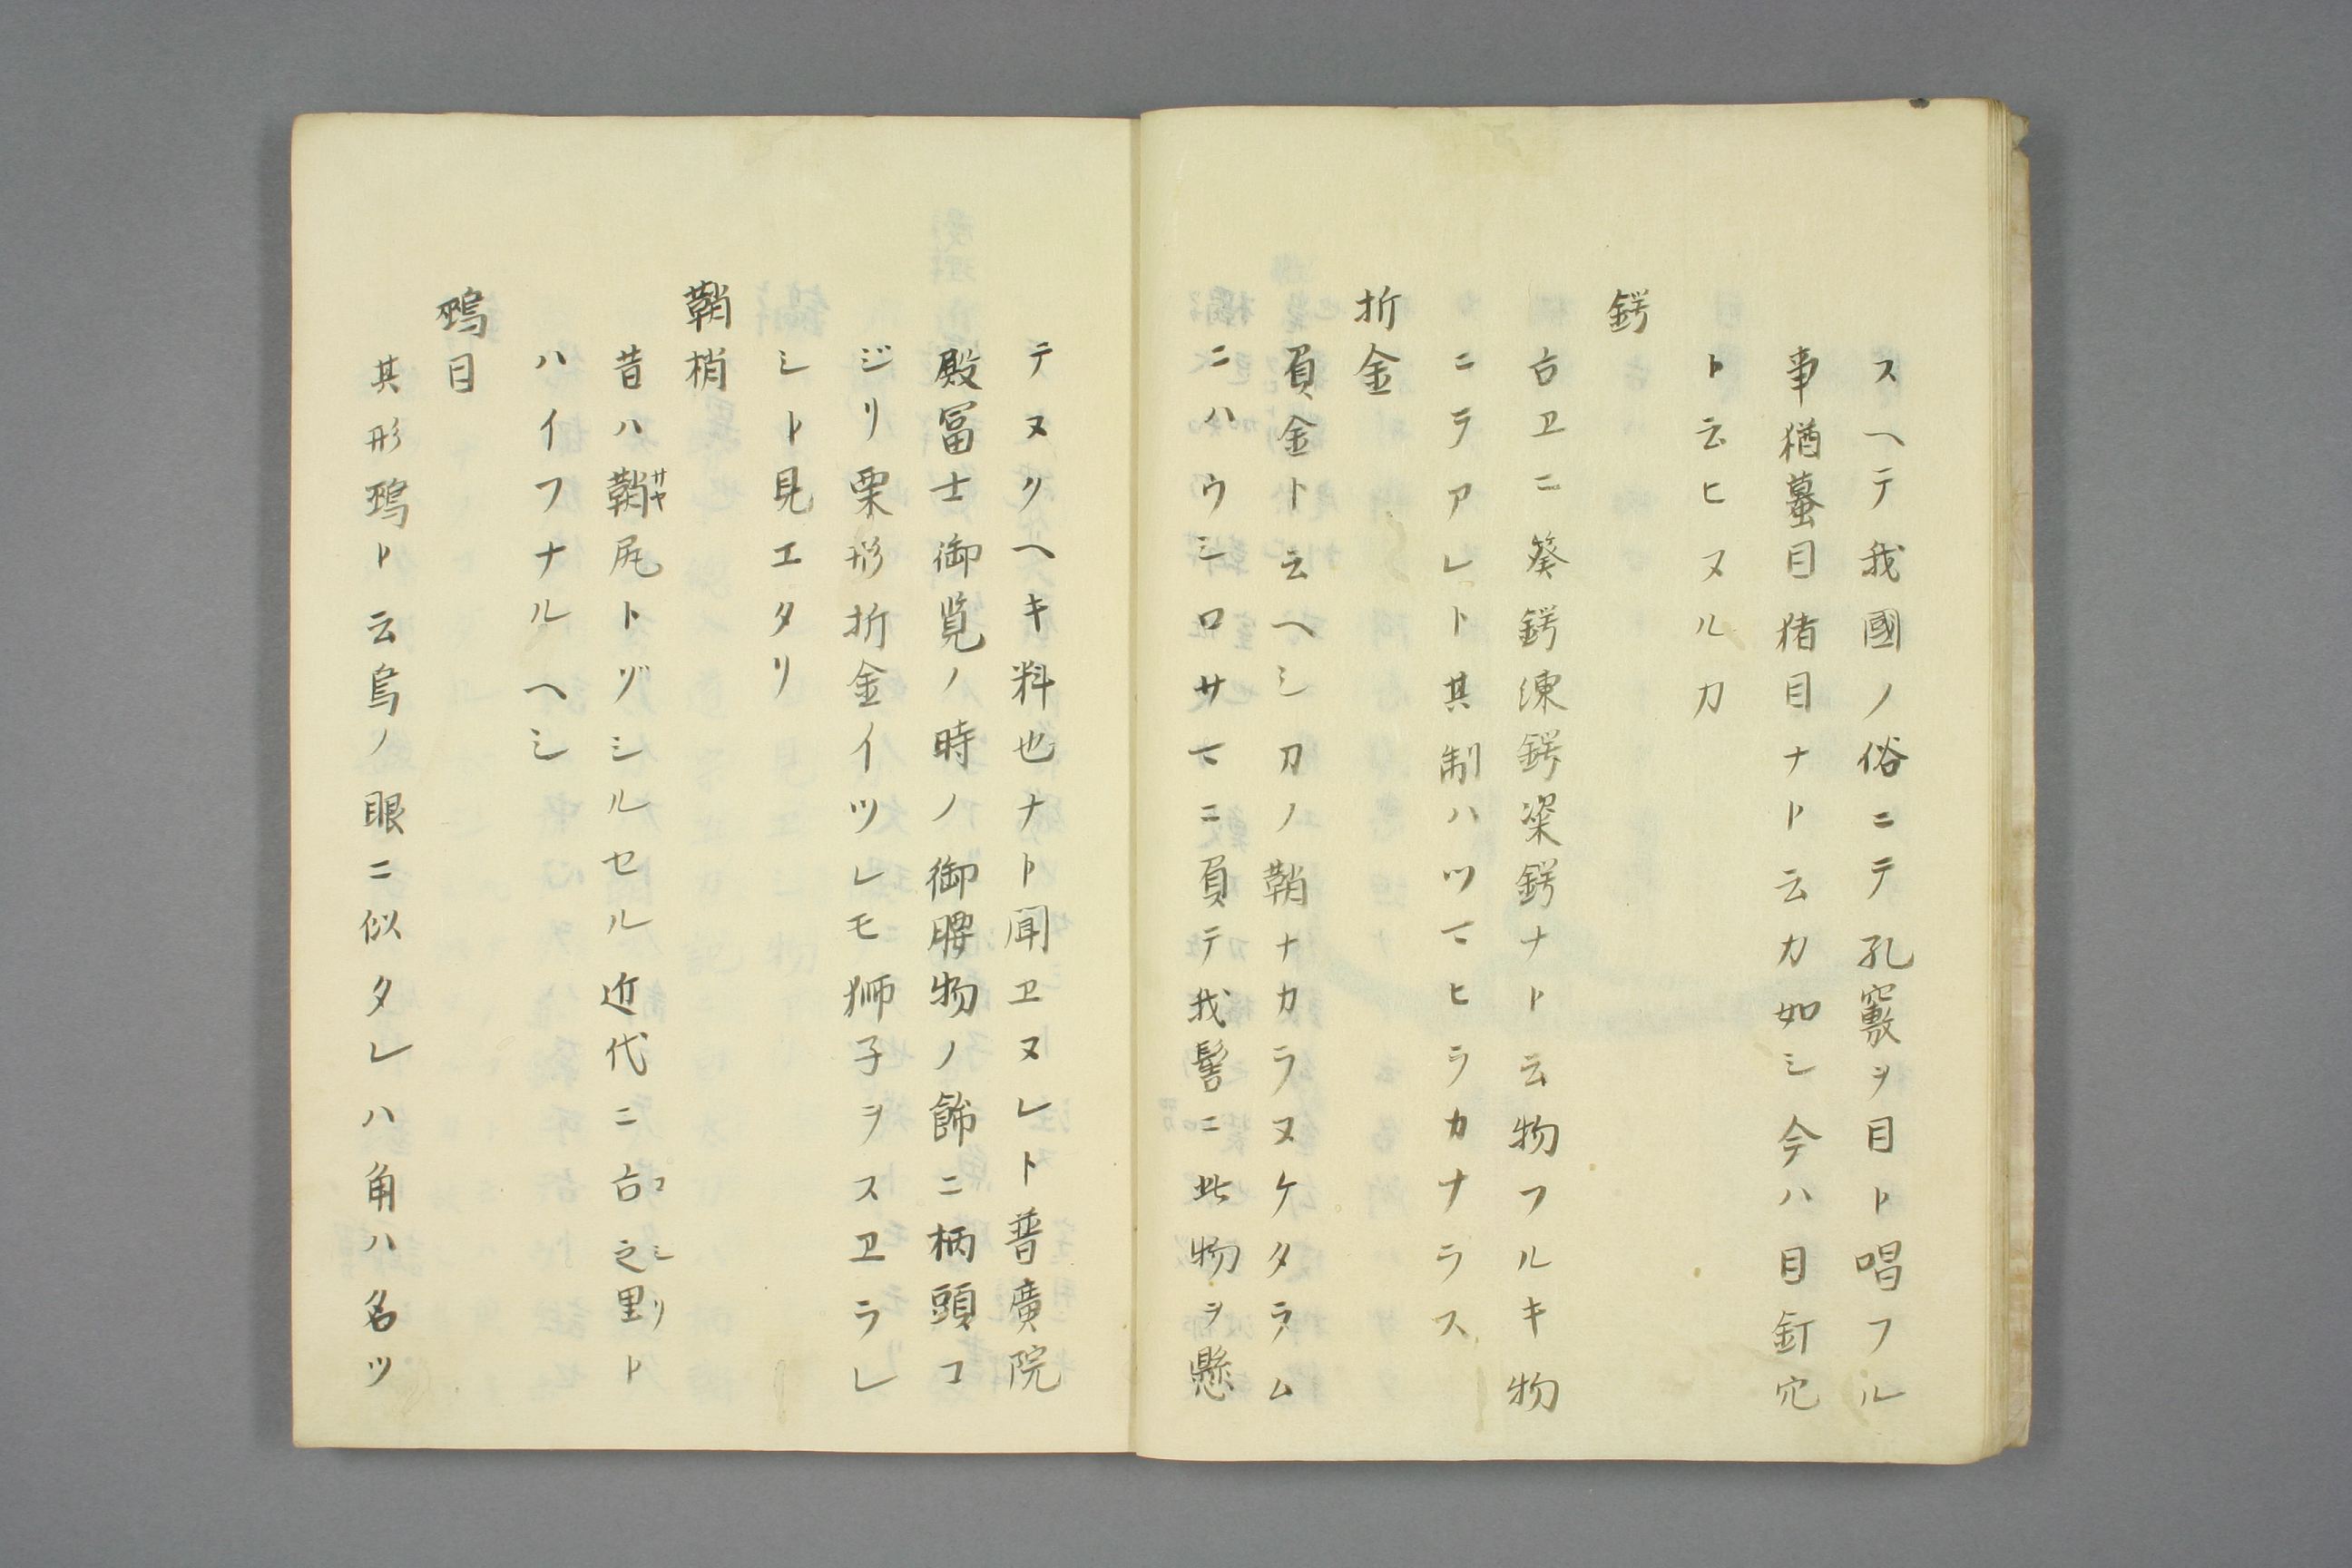 スヘテ我國ノ俗ニテ孔竅ヲ目ト唱フル
事猶蟇目猪目ナト云カ如シ今ハ目釘穴
ト云ヒヌルカ
鍔
古ヱニ葵鍔練鍔粢鍔ナト云物フルキ物
ニテアレト其制ハツマヒラカナラス
折金
負金ト云ヘシ刀ノ鞘ナカラヌケタラム
ニハウシロサマニ負テ我髻ニ此物ヲ懸
テヌクヘキ料也ナト聞ヱヌレト普廣院
殿冨士御覧ノ時ノ御腰物ノ餝ニ柄頭コ
ジリ栗形折金イツレモ狮子ヲスヱラレ
シト見エタリ
鞘梢
昔ハ鞘尻トヅシルセル近代ニ古之里ト
サヤ
コシリ
ハイフナルヘシ
鵐目
其形鵐ト云鳥ノ眼ニ似タレハ角ハ名ツ